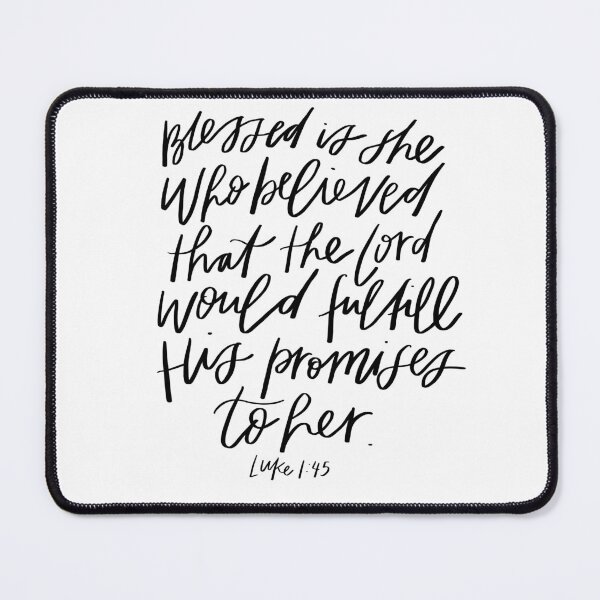 Blessed is she
who believed
that the Lord
would fulfill
His promises
to her.
Luke 1:45